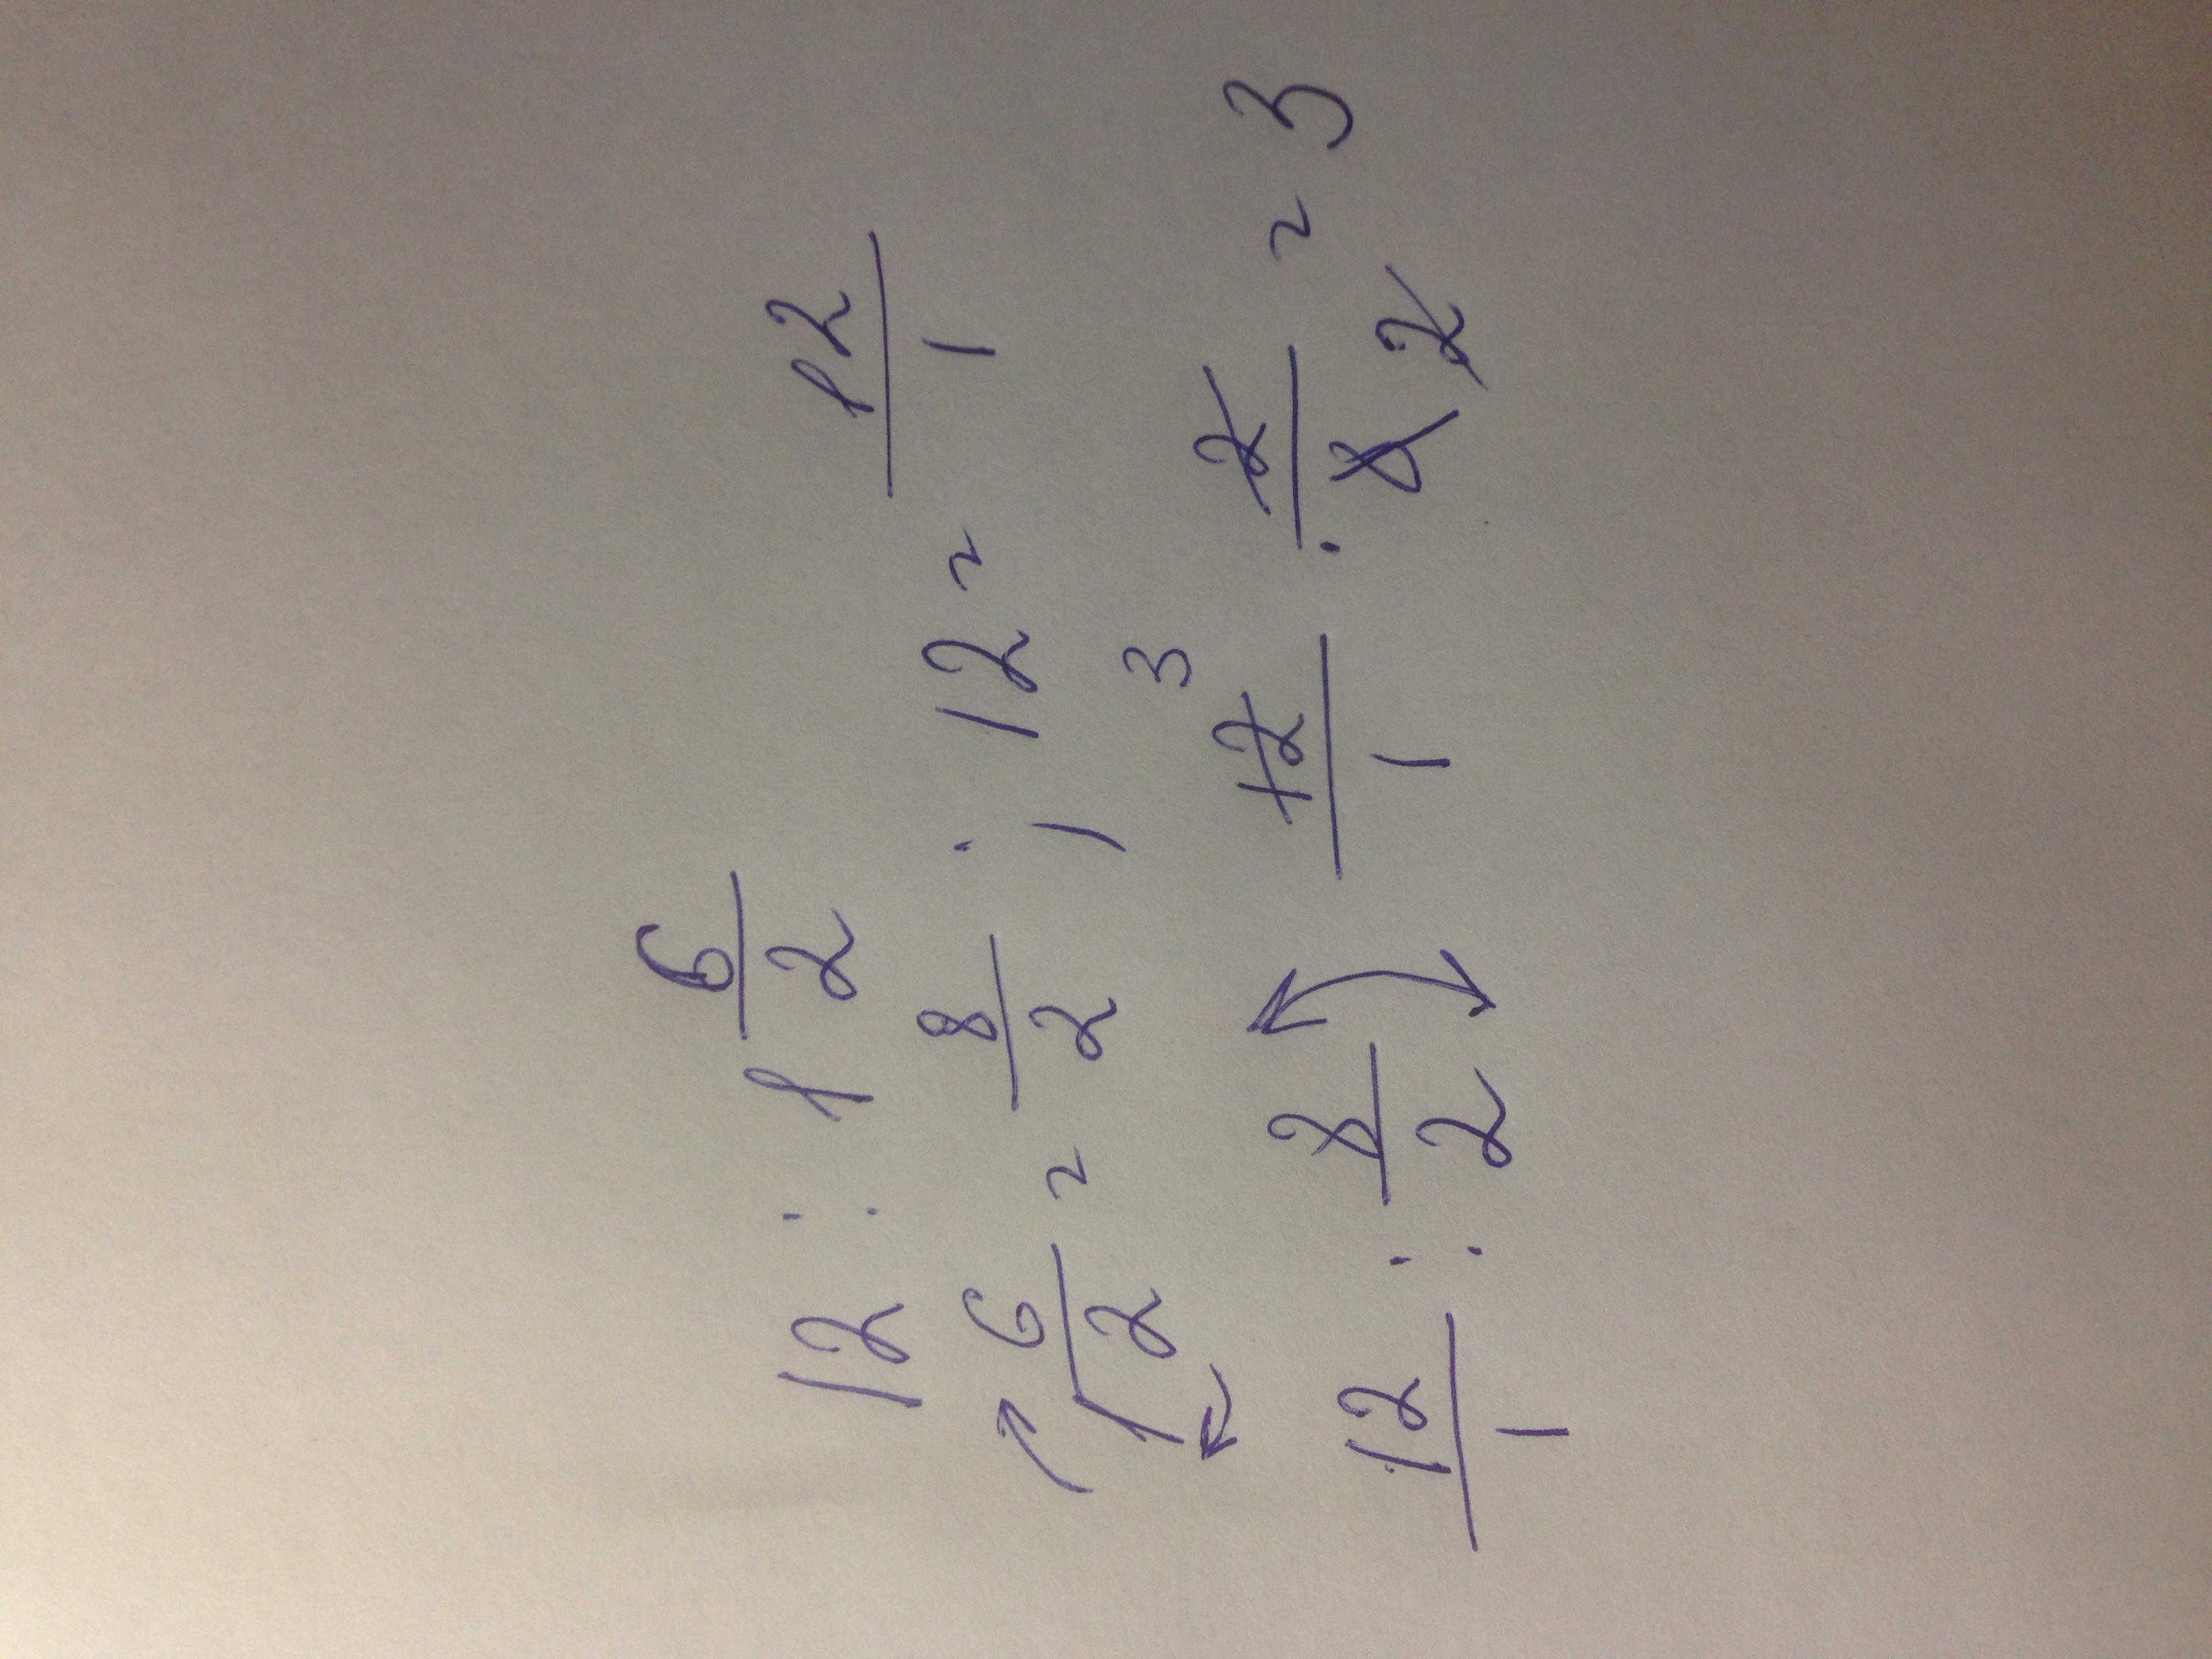 12 : 1 6/2
1 6/2 = 8/2 ; 12 = 12/1
12/1 : 8/2 12/1 · 2/8 = 3
3 2